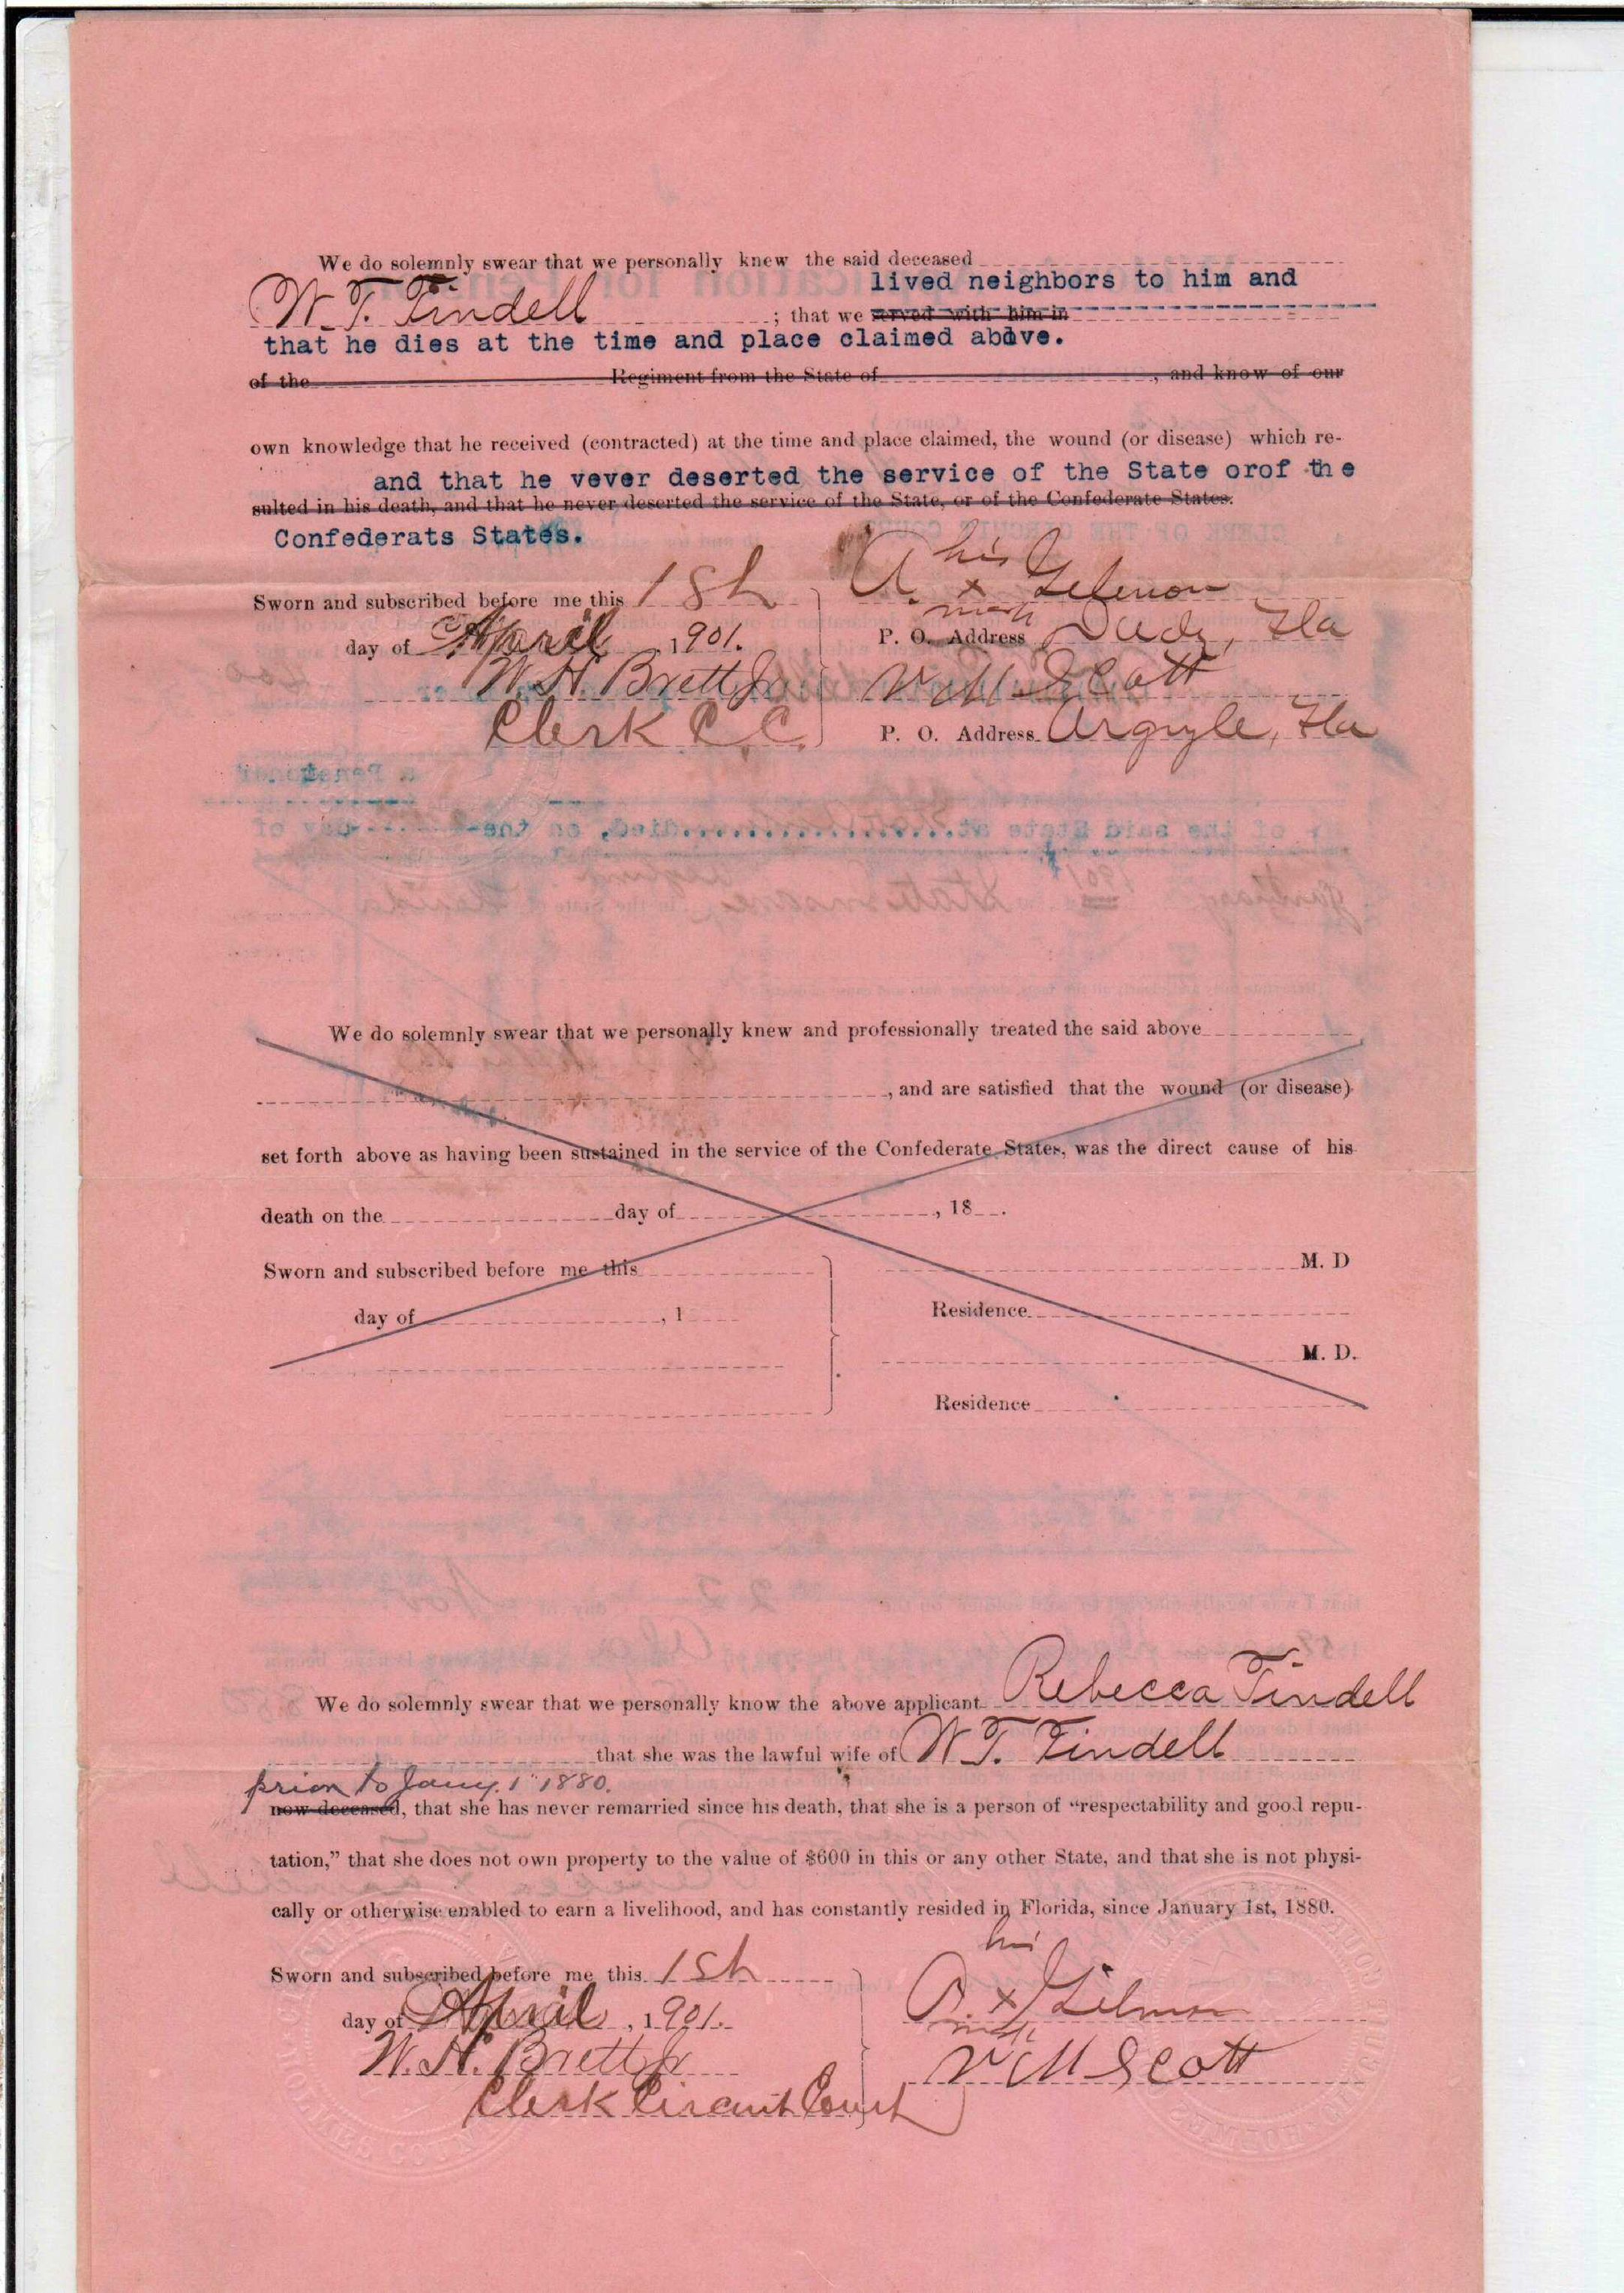 We do solemnly swear that we personally knew the said deceased
lived neighbors to him and
W. T. Tindell ; that we served with him in
that he dies at the time and place claimed above.
of the Regiment from the State of , and know of our
own knowledge that he received (contracted) at the time and place claimed, the wound (or disease) which re-
and that he vever deserted the service of the State orof the
sulted in his death, and that he never deserted the service of the State, or of the Confederate States.
Confederats States.
his
Sworn and subscribed before me this 1st A. x
mark
day of April , 1901. P. O. Address Fla
W. H. Brett Jr W M Scott
Clerk C. C. P. O. Address Argyle, Fla
We do solemnly swear that we personally knew and professionally treated the said above
, and are satisfied that the wound (or disease)
set forth above as having been sustained in the service of the Confederate States, was the direct cause of his
death on the day of , 18 .
Sworn and subscribed before me this M. D
day of , 1 Residence
M. D.
Residence
We do solemnly swear that we personally know the above applicant Rebecca Tindell
that she was the lawful wife of W. T. Tindell
prior to Jany. 1" 1880.
now deceased, that she has never remarried since his death, that she is a person of “respectability and good repu-
tation,” that she does not own property to the value of $600 in this or any other State, and that she is not physi-
cally or otherwise enabled to earn a livelihood, and has constantly resided in Florida, since January 1st, 1880.
his
Sworn and subscribed before me this 1st
A. x Gilmon
mark
day of April , 1901.
W. H. Brett Jr W M Scott
Clerk Circuit Court